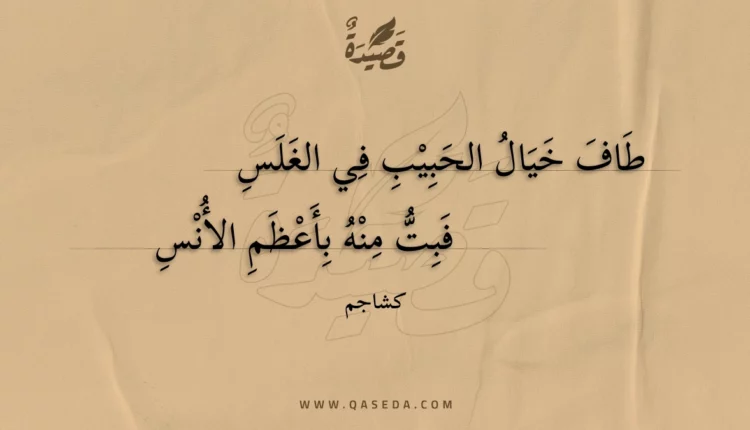 قَصِيْدَةٌ
طَافَ خَيَالُ الحَبِيْبِ فِي الغَلَسِ
فَبِتُّ مِنْهُ بِأَعْظَمِ الأُنْسِ
كشاجم
WWW.QASEDA.COM